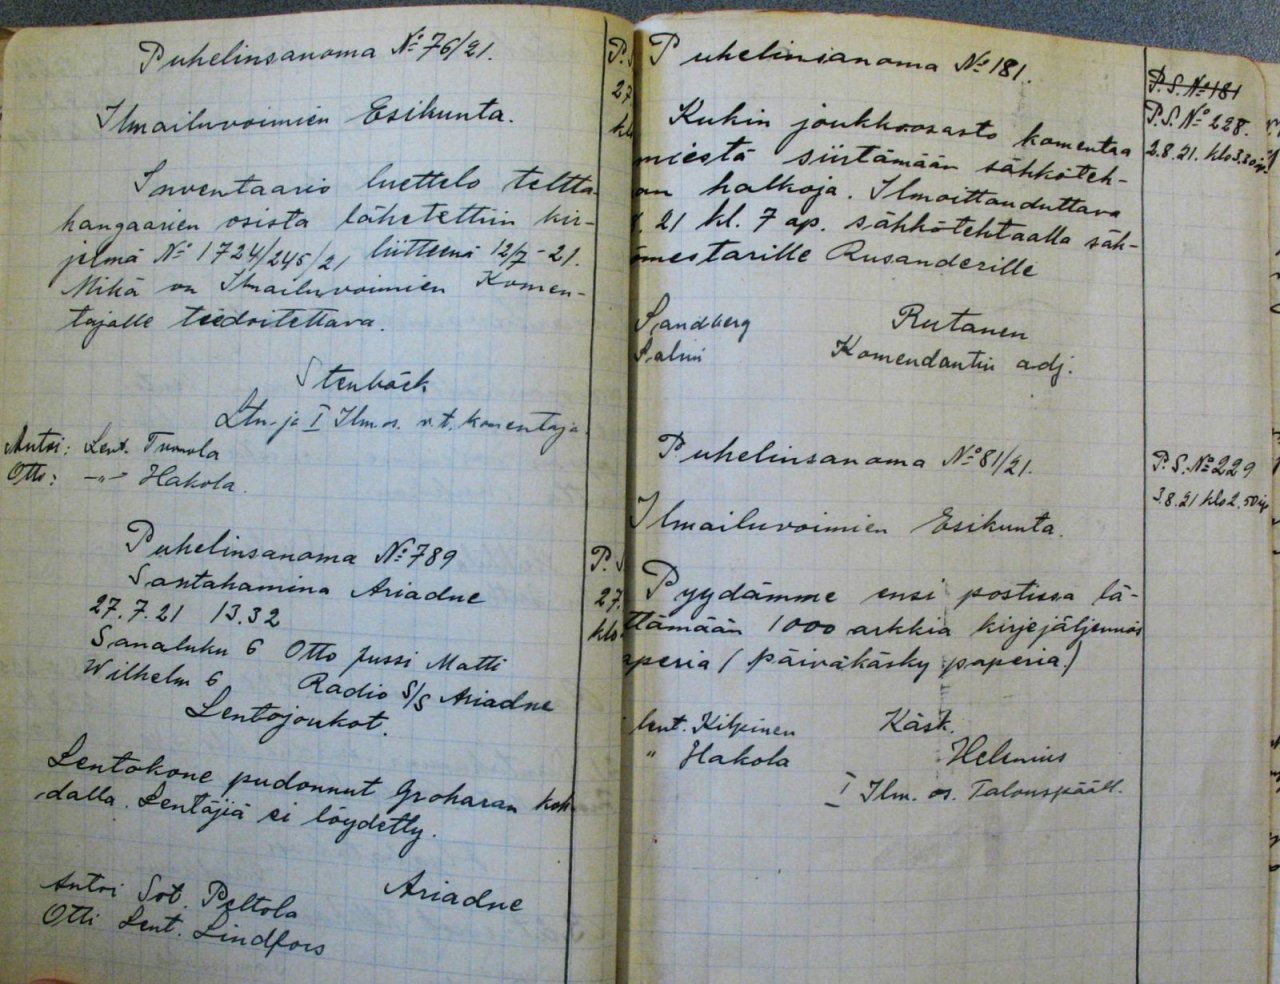 Puhelinsanoma No 76/21.
Ilmailuvoimien Esikunta.
Inventaario luettelo teltta-
hangaarien osista lähetettiin kir-
jelmä No 1724/245/21 liitteenä 12/7-21.
Mikä on Ilmailuvoimien Komen-
tajalle tiedoitettava.
Stenbäck
Ltn. ja I Ilm.os. v.t. komentaja.
Antoi: Lent. Tumola
Otti: -"- Hakola.
Puhelinsanoma No 789
Santahamina Ariadne
27.7.21 13.32
Sanaluku 6 Otto Jussi Matti
Wilhelm 6 Radio S/S Ariadne
Lentojoukot.
Lentokone pudonnut Groharan koh-
dalla. Lentäjiä ei löydetty.
Ariadne
Antoi Sot. Peltola
Otti Lent. Lindfors
P.S
27
klo
P.S
27.
klo
Puhelinsanoma No 181.
Kukin joukkoosasto komentaa
miestä siirtämään sähköteh-
an halkoja. Ilmoittauduttava
. 21 kl. 7 ap. sähkötehtaalla säh-
ömestarille Rusanderille
Sandberg Rutanen
Salmi Komendantin adj.
P.S. No 181
P.S. No 228.
2.8.21. klo 3.30 ip.
Puhelinsanoma No 81/21.
Ilmailuvoimien Esikunta.
Pyydämme ensi postissa lä-
ttämään 1000 arkkia kirjejäljennös
aperia (päiväkäsky paperia.)
lent. Kilpinen Käsk.
" Hakola Helenius
I Ilm. os. Talouspääll.
P.S. No 229
3.8.21 klo 2.50 ip